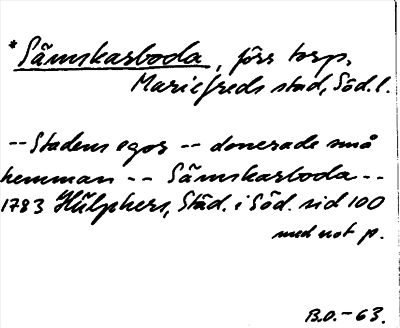 *Sämskarboda, förr torp,
Mariefreds stad, Söd. l.
-- Stadens egor -- donerade små
hemman -- Sämskarboda --
1783 Hülphers, Städ. i Söd. sid 100
med not p.
B.O. - 63.